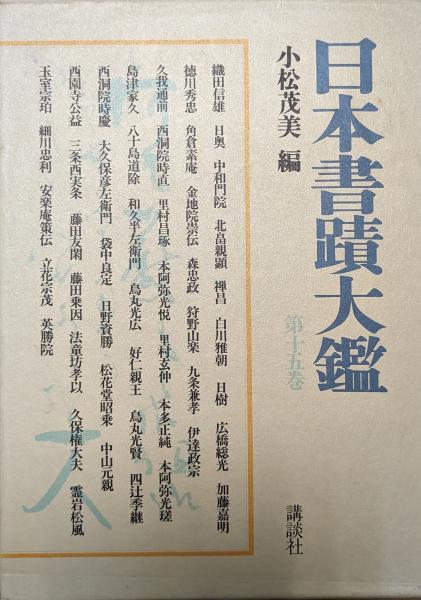 日本書蹟大鑑
第十五巻
小松茂美 編
講談社
織田信雄 日奥 中和門院 北畠親顕 禅昌 白川雅朝 日樹 広橋総光 加藤嘉明
徳川秀忠 角倉素庵 金地院崇伝 森忠政 狩野山楽 九条兼孝 伊達政宗
久我通前 西洞院時直 里村昌琢 本阿弥光悦 里村玄仲 本多正純 本阿弥光瑳
島津家久 八十島道除 和久半左衛門 烏丸光広 好仁親王 烏丸光賢 四辻季継
西洞院時慶 大久保彦左衛門 袋中良定 日野資勝 松花堂昭乗 中山元親
西園寺公益 三条西実条 藤田友閑 藤田乗因 法童坊孝以 久保権大夫 霊岩松風
玉室宗珀 細川忠利 安楽庵策伝 立花宗茂 英勝院